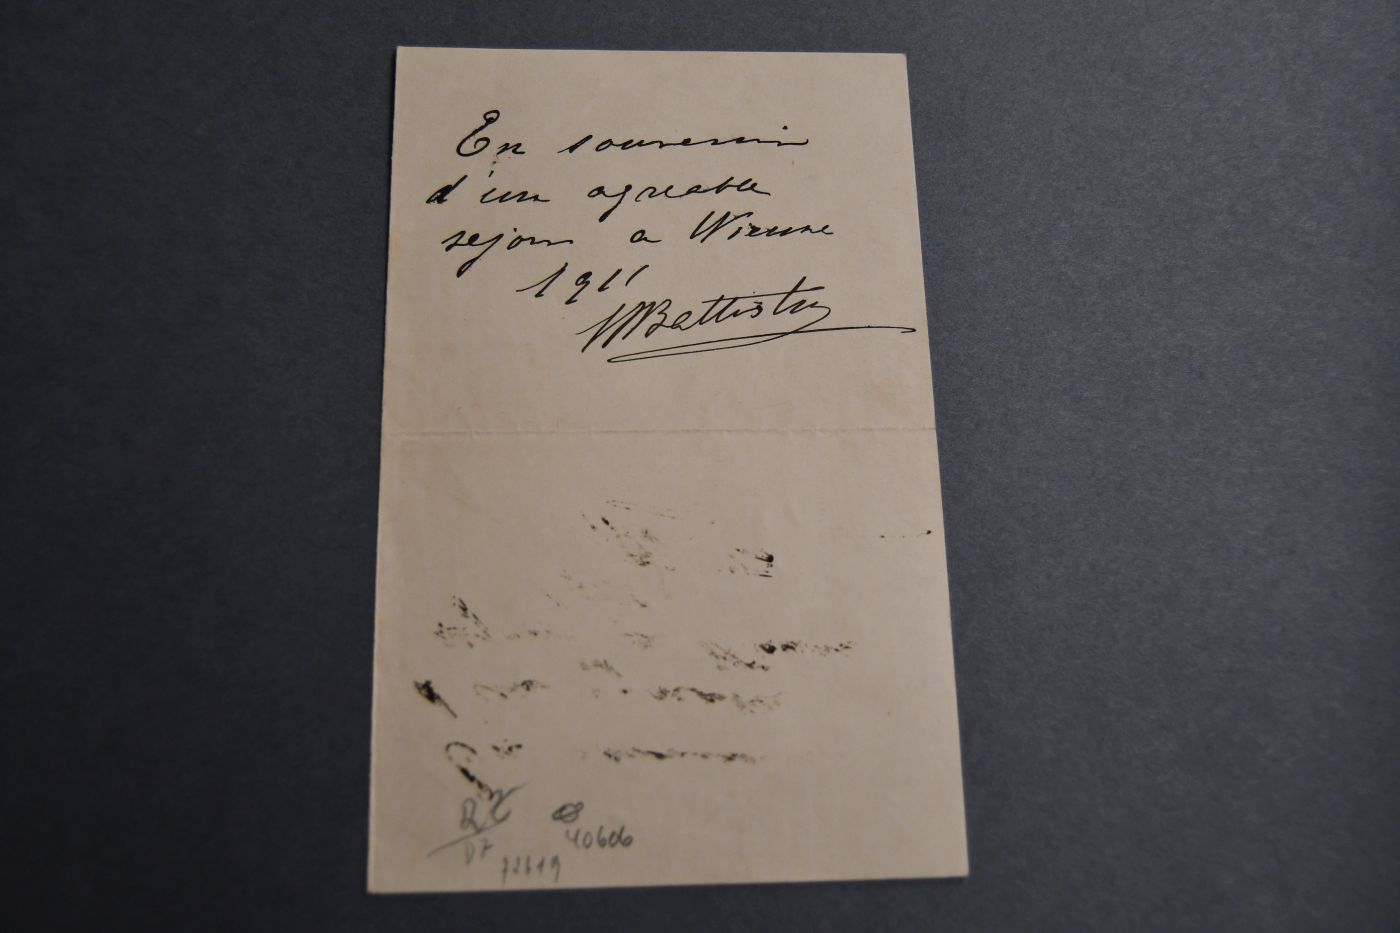 En souvenir
d'un agreable
sejour a Wienne
1911
MBattistini
40606
72619